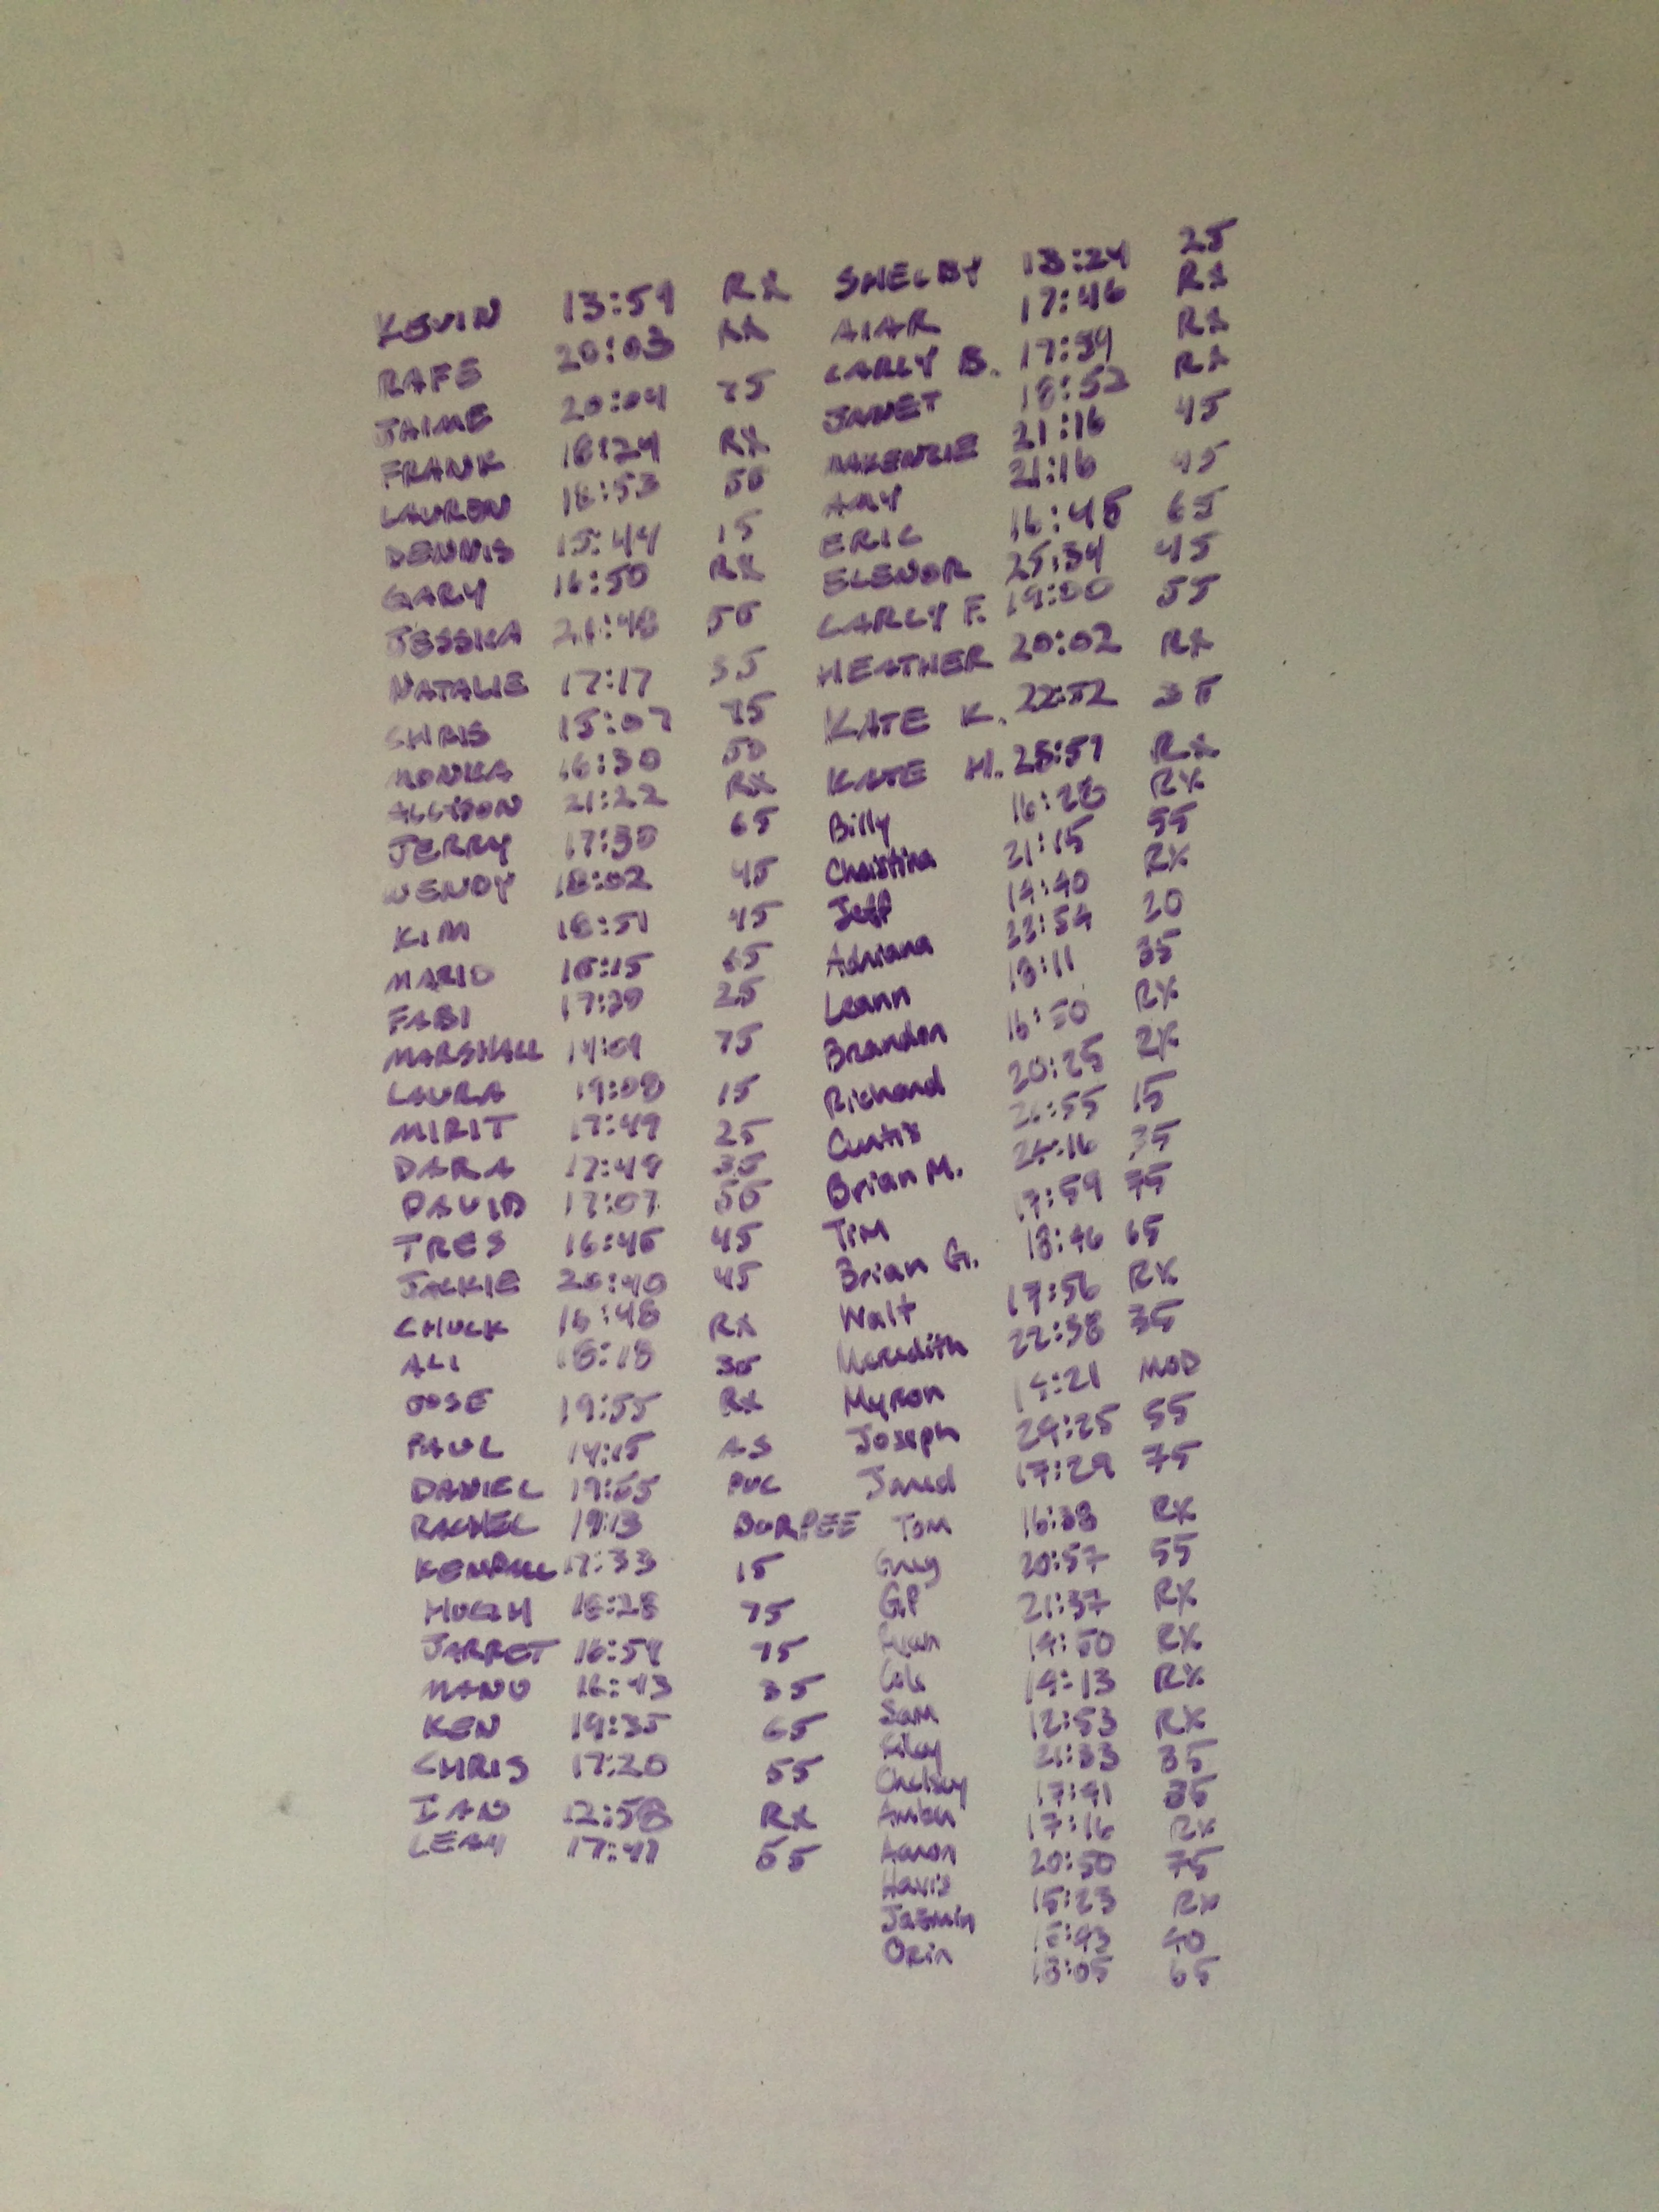 KEVIN 13:59 RX
RAFE 20:03 RX
JAIME 20:04 75
FRANK 18:24 RX
LAUREN 18:53 50
DENNIS 15:44 15
GARY 16:50 RX
JESSIKA 21:48 50
NATALIE 17:17 35
CHRIS 15:07 75
MONIKA 16:30 50
ALLYSON 21:22 RX
JERRY 17:30 65
WENDY 18:02 45
KIM 18:51 45
MARIO 16:15 65
FABI 17:39 25
MARSHALL 14:09 75
LAURA 19:08 15
MIRIT 17:49 25
DARA 17:49 35
DAVID 17:07 50
TRES 16:45 45
JACKIE 20:40 45
CHUCK 16:48 RX
ALI 18:18 35
JOSE 19:55 RX
PAUL 14:15 AS
DANIEL 19:55 PVC
RACHEL 19:13 BURPEE
KENDALL 17:33 15
HUGH 18:28 75
JARRET 16:54 75
MANU 16:43 35
KEN 19:35 65
CHRIS 17:20 55
IAN 12:58 RX
LEAH 17:41 55
SHELBY 13:24 25
AIAR 17:46 RX
CARLY B. 17:59 RX
JANET 18:52 RX
MAKENZIE 21:16 45
AMY 21:16 45
ERIC 16:45 65
ELENOR 25:34 45
CARLY F. 19:00 55
HEATHER 20:02 RX
KATE K. 22:52 35
KATE H. 25:59 RX
Billy 16:28 RX
Christina 21:15 55
Jeff 14:40 RX
Adriana 22:54 20
Leann 18:11 35
Brandon 16:50 RX
Richard 20:25 RX
Curtis 15
Brian M. 24:16 35
Tim 17:59 75
Brian G. 18:46 65
Walt 17:56 RX
Meredith 22:38 35
Myron 14:21 MOD
Joseph 24:25 55
Jared 17:29 75
Tom 16:38 RX
Greg 20:57 55
GP 21:37 RX
Ryan 14:50 RX
Cole 14:13 RX
Sam 12:53 RX
Riley 21:33 35
Chelsey 17:41 35
Amber 17:16 RX
Aaron 20:50 75
Havis 15:23 RX
Jazmin 40
Orin 18:05 65